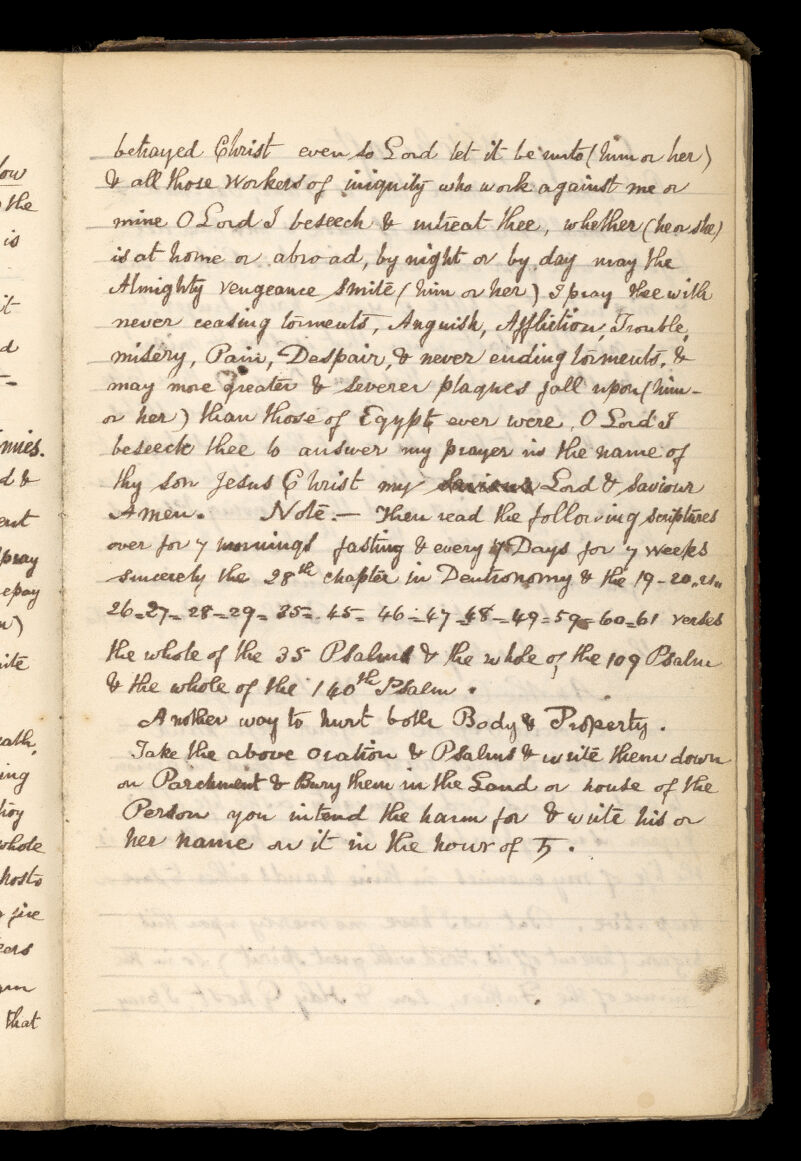 low
the
is
it
d
mies.
d &
ent
pray
epay
ite
ath,
ing
whole
hosts
fire
ears
that
betrayed Christ even so Lord let it be unto (him or her)
& all those Workers of iniquity who work against me or
mine O Lord I beseech & intreat thee, whether (he or she)
is at home or abroad, by night or by day may the
Almighty vengeance smite (him or her) I pray thee with
never ceasing torments, Anguish, Affliction, Trouble,
misery, Pain, Despair, & never ending torments, &
may more greater & severer plagues fall upon (him-
or her) than those of Egypt ever were, O Lord I
beseech thee to answer my prayer in the name of
thy son Jesus Christ my Saviour Lord & Saviour
Amen. Note.— Then read the following scriptures
over for 7 mornings fasting & every 7 Days for 7 weeks
sincerely the 28th chapter in Deutronomy & the 19-20-21-
26-27-28-29-35-45-46-47-48-49-59-60-61 verses
the whole of the 35 Psalms & the whole of the 109 Psalm
& the whole of the 140th Psalm.
Another way to hurt both Body & Property.
Take the above oration & Psalms & write them down
on Parchment & Bury them in the Land or house of the
Person you intend the harm for & write his or
her name on it in the hour of ♄.